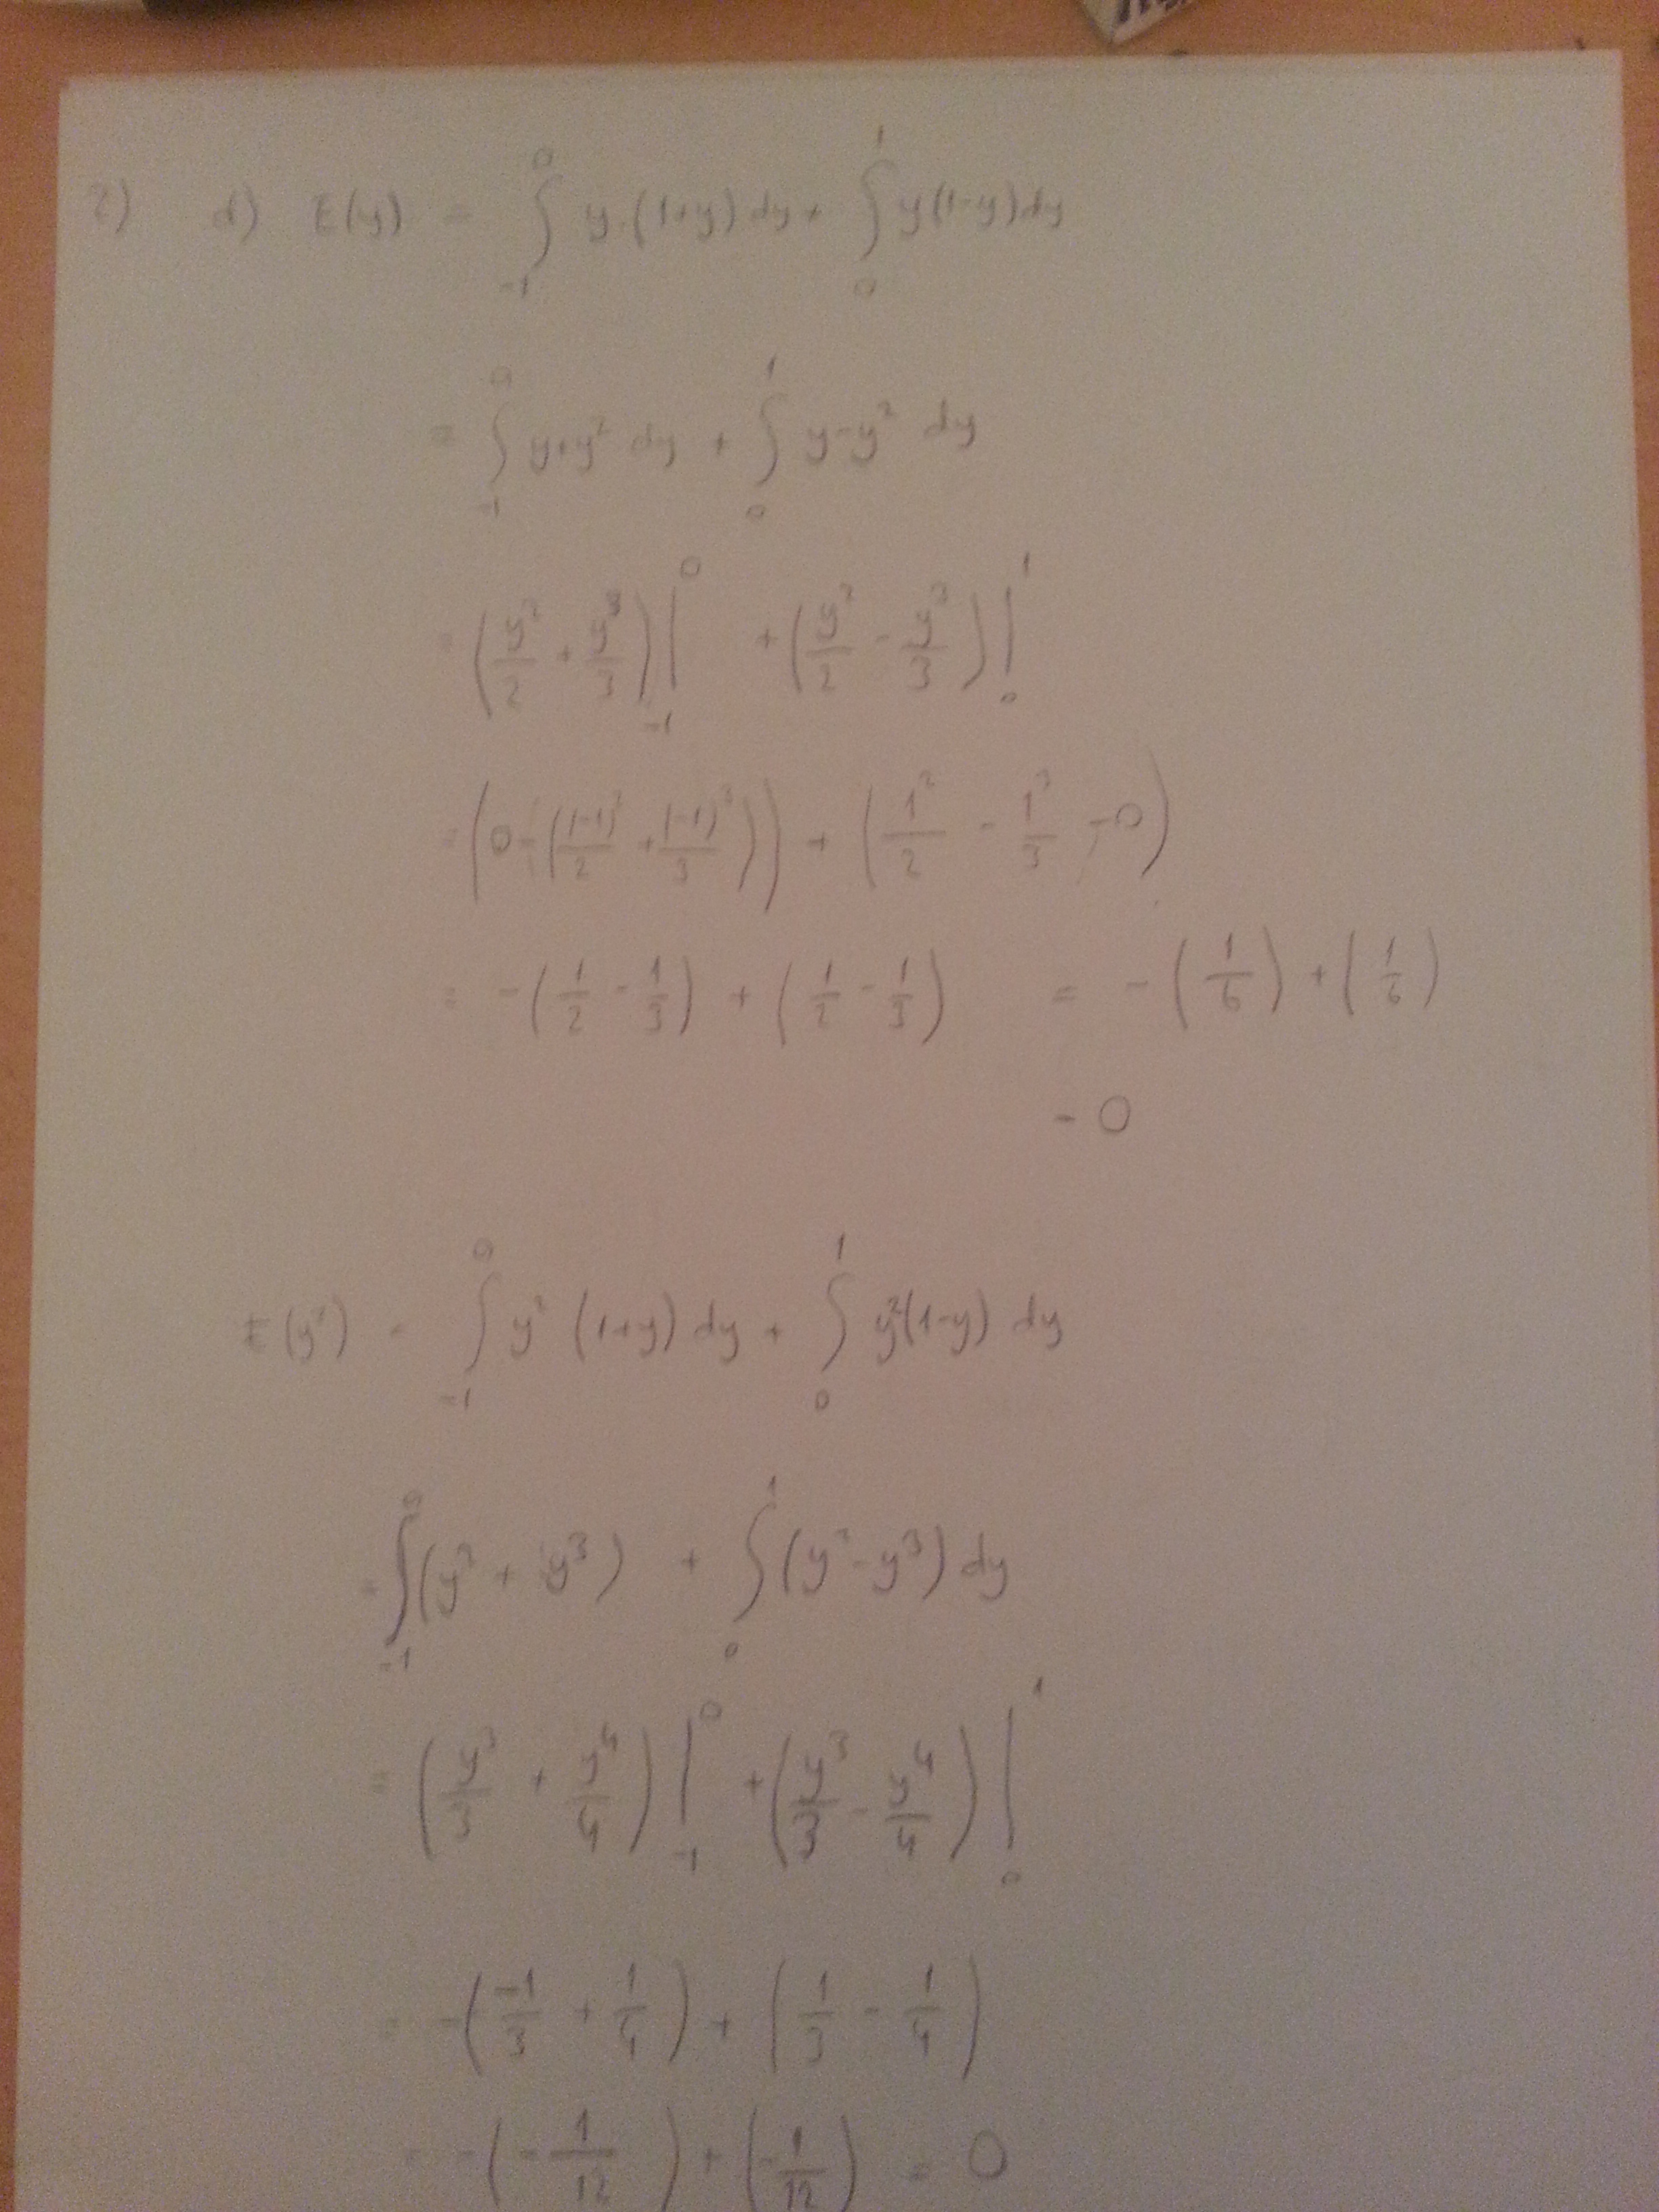 2) d) E(y) = ∫_{-1}^{0} y·(1+y) dy + ∫_{0}^{1} y(1-y) dy
= ∫_{-1}^{0} y+y² dy + ∫_{0}^{1} y-y² dy
= (y²/2 + y³/3)|_{-1}^{0} + (y²/2 - y³/3)|_{0}^{1}
= (0-((-1)²/2 + (-1)³/3)) + (1²/2 - 1³/3 - 0)
= -(1/2 - 1/3) + (1/2 - 1/3) = -(1/6) + (1/6)
= 0
E(y²) = ∫_{-1}^{0} y² (1+y) dy + ∫_{0}^{1} y²(1-y) dy
= ∫_{-1}^{0} (y² + y³) + ∫_{0}^{1} (y² - y³) dy
= (y³/3 + y⁴/4)|_{-1}^{0} + (y³/3 - y⁴/4)|_{0}^{1}
= -(-1/3 + 1/4) + (1/3 - 1/4)
= -(-1/12) + (-1/12) = 0